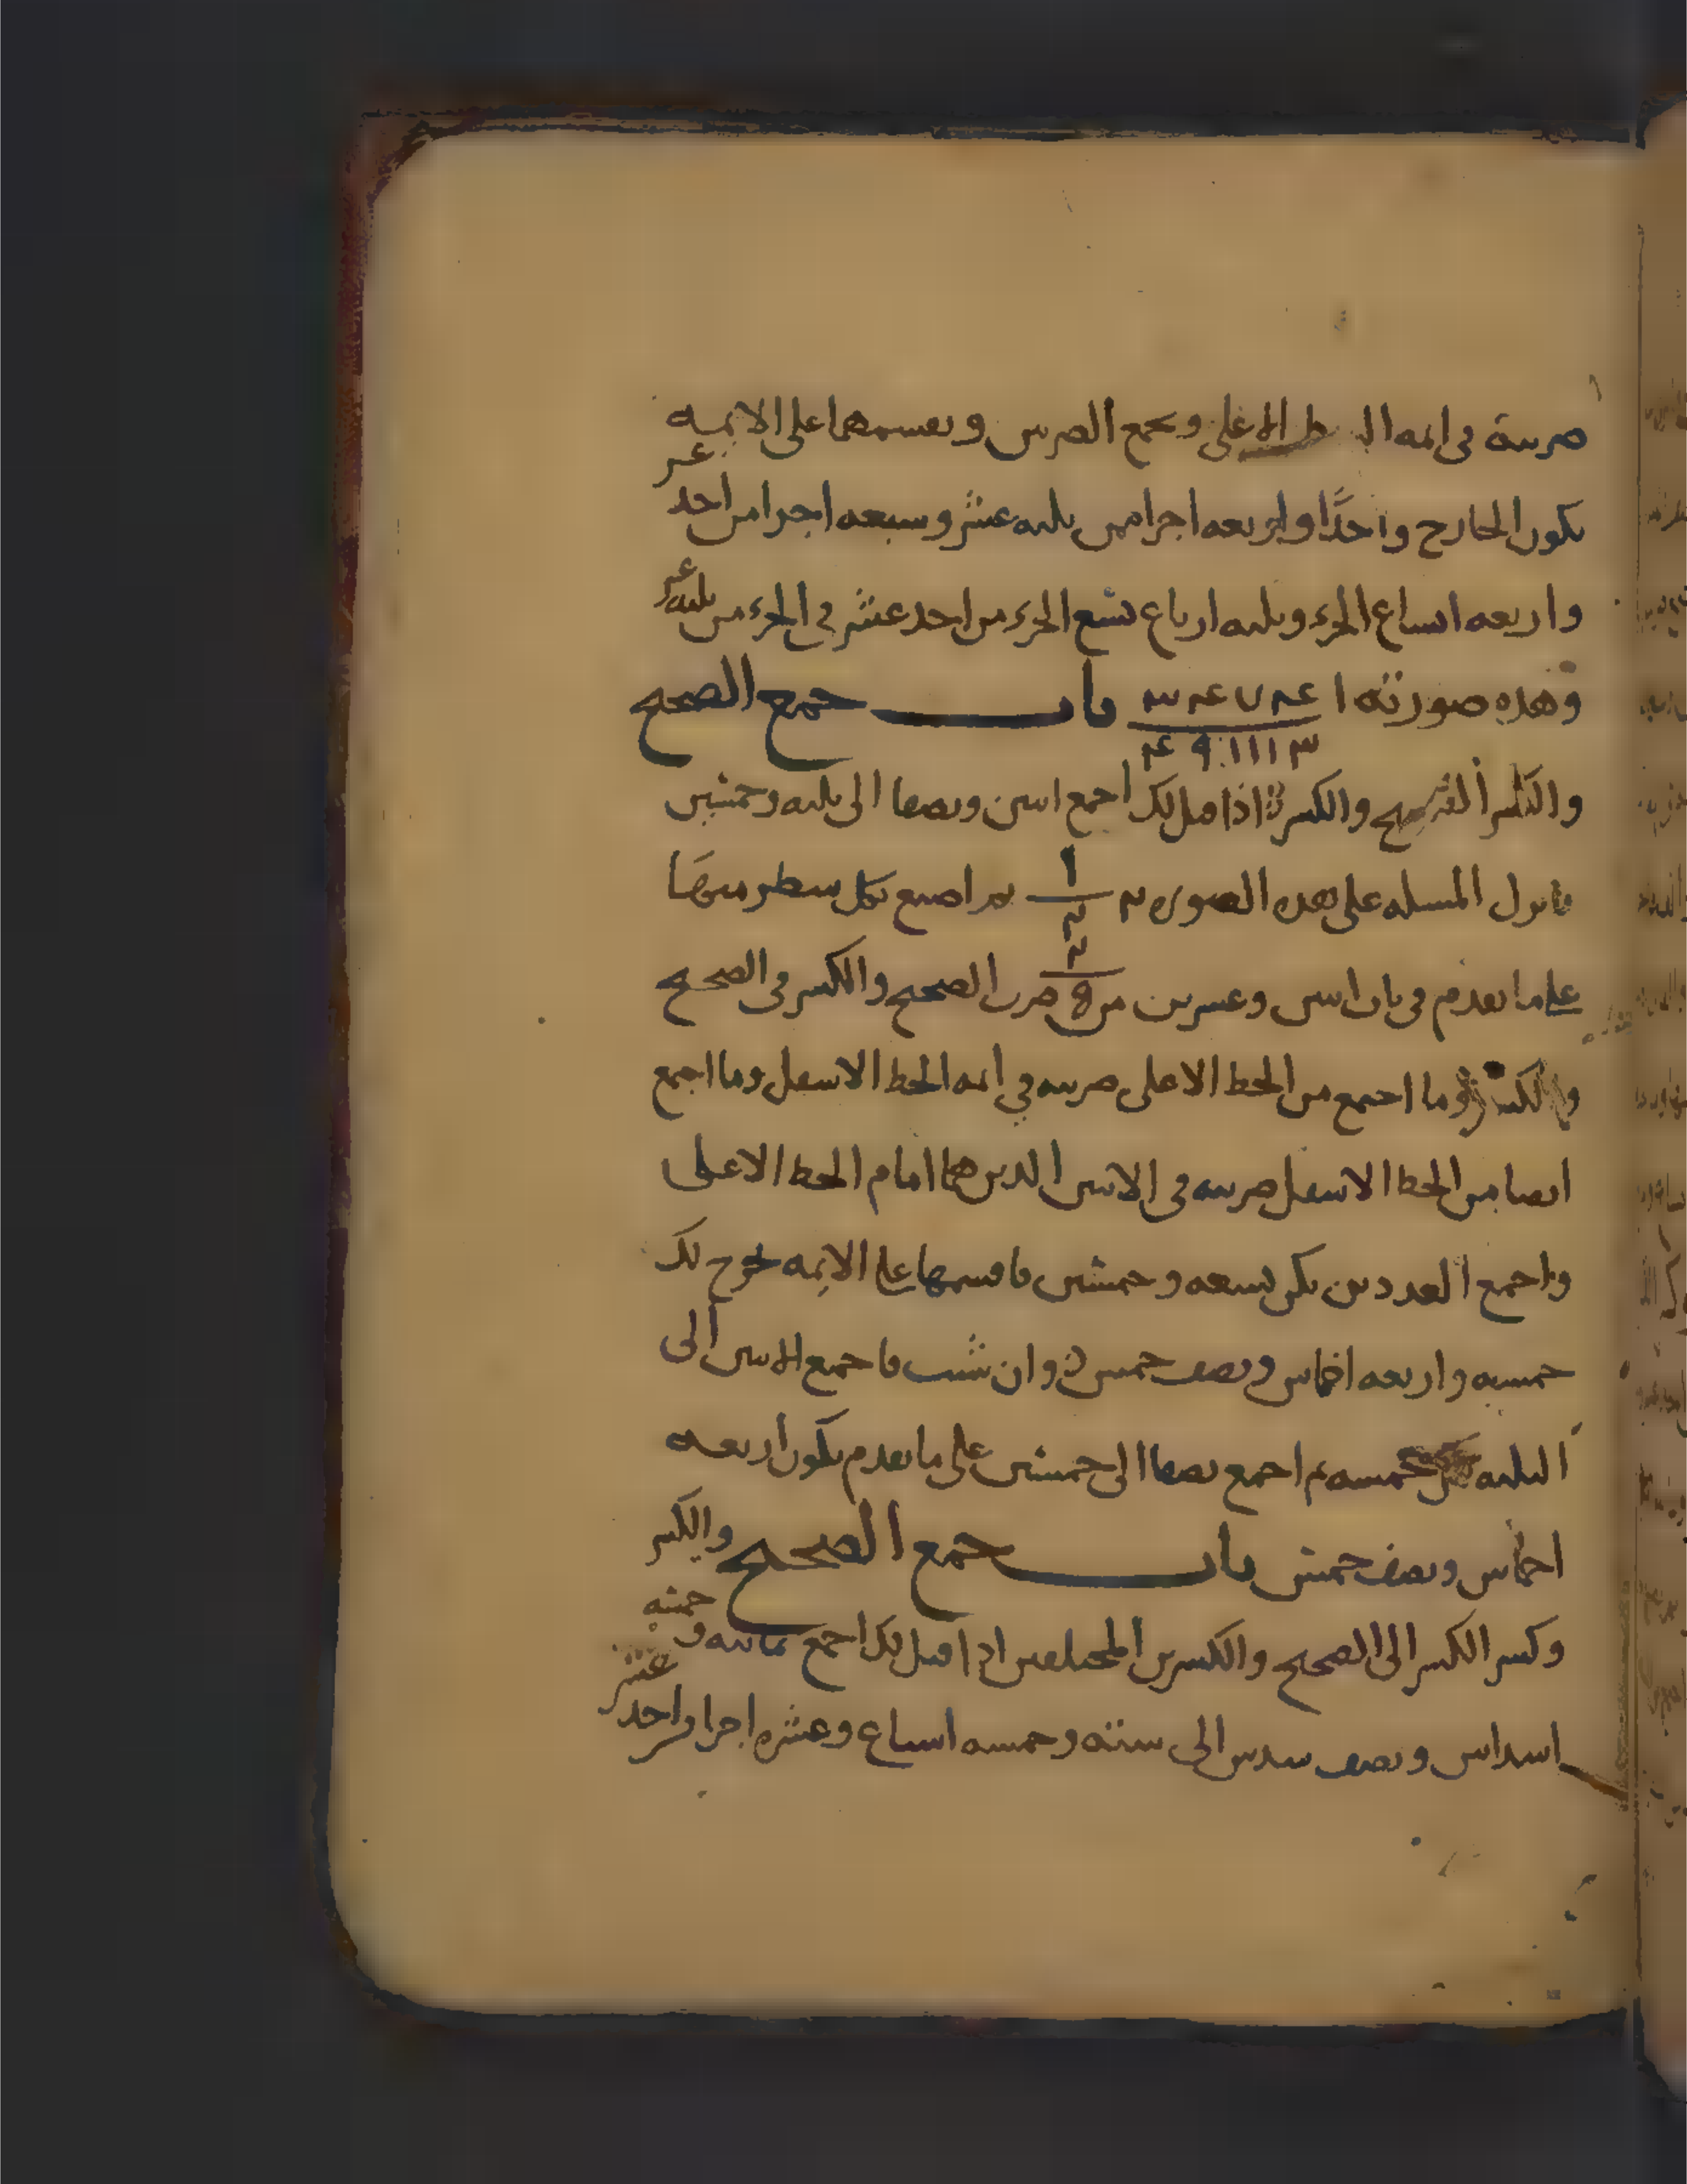 ضربته في ايمه الخط الاعلى وتجمع الضربين وتقسمهما على الايمه
يكون الخارج واحدًا واربعه اجزا من ثلثه عشر وسبعه اجزا من احد عشر
واربعه اتساع الجزء وثلثه ارباع تسع الجزء من احد عشر في الجزء من ثلثه عشر
وهذه صورته ١ ٤ ٧ ٤ ٣ باب جمع الصحيح
٣ ١ ١ ١ ٩ ٤
والكسر الى الصحيح والكسر اذا قيل لك اجمع اثنين ونصفا الى ثلثه وخمسين
فانزل المسله على هذه الصوره ٢ ١ ثم اصنع بكل سطر منها
٢
٢
على ما تقدم في باب اثنين وعشرين من ٥ ضرب الصحيح والكسر في الصحيح
والكسر وما اجتمع من الخط الاعلى ضربته في ايمه الخط الاسفل وما اجتمع
ايضا من الخط الاسفل ضربته في الاثنين الذين هما امام الخط الاعلى
واجمع العددين يكن تسعه وخمسين فاقسمها على الايمه يخرج لك
خمسه واربعه اخماس ونصف خمس وان شيت فاجمع الاثنين الى
الثلثه خمسه ثم اجمع نصفا الى خمسين على ما تقدم يكون اربعه
اخماس ونصف خمس باب جمع الصحيح والكسر
وكسر الكسر الى الصحيح والكسرين المختلفين اذا قيل لك اجمع ثمانيه وخمسه
اسداس ونصف سدس الى سته وخمسه اسباع وعشره اجزا من احد عشر